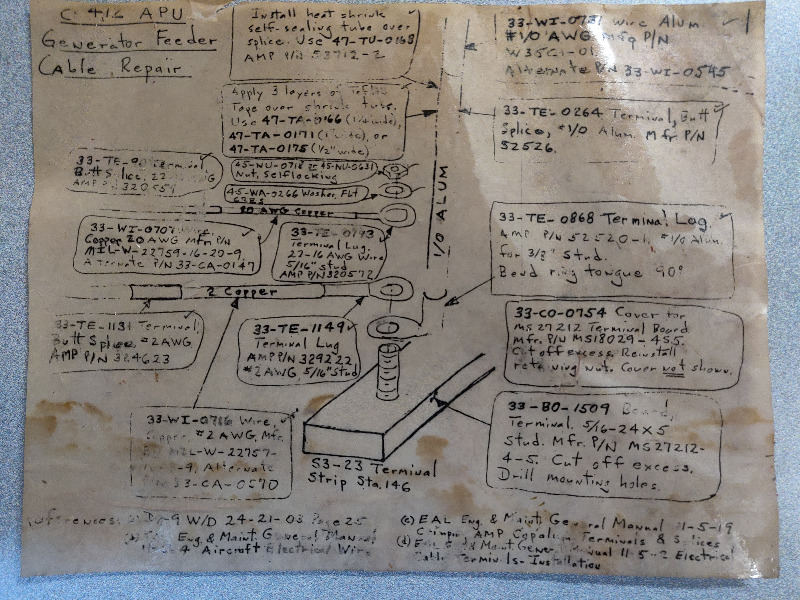 C-416 APU
Generator Feeder
Cable Repair
Install heat shrink
self-sealing tube over
splice. Use 47-TU-0163
AMP P/N 53712-2
33-WI-0731 wire Alum.
#1/0 AWG Mfg P/N
Alternate P/N 33-WI-0545
Apply 3 layers of Teflon
Tape over shrink tube.
Use 47-TA-0166 (1/4 wide),
47-TA-0171 (wide), or
47-TA-0175 (1/2" wide)
33-TE-0264 Terminal, Butt
Splice, #1/0 Alum. Mfr. P/N
52526.
Terminal
Butt Splice, 22 AWG
AMP P/N 320559
45-NU-0718 or 45-NU-0631
Nut, Selflocking
45-WA-0266 Washer, Flat
20 AWG Copper
1/0 ALUM
33-WI-0707
Copper 20 AWG Mfr P/N
MIL-W-22759-16-20-9,
Alternate P/N 33-CA-0147
33-TE-0793
Terminal Lug,
22-16 AWG Wire
5/16" stud
AMP P/N 320572
33-TE-0868 Terminal Lug.
AMP P/N 52520-1. #1/0 Alum.
for 3/8" Stud.
Bend ring tongue 90°
2 Copper
33-TE-1131 Terminal,
Butt Splice, #2 AWG.
AMP P/N 324623
33-TE-1149
Terminal Lug
AMP P/N 329222
#2 AWG, 5/16" Stud
33-CO-0754 Cover for
MS27212 Terminal Board
Mfr. P/N MS18029-4S5.
Cut off excess. Reinstall
retaining nuts. Cover not shown.
33-WI-0716 Wire,
Copper, #2 AWG, Mfr.
MIL-W-22759-
Alternate
33-CA-0570
33-BO-1509 Board,
Terminal. 5/16-24X5
Stud. Mfr. P/N MS27212-
4-5. Cut off excess.
Drill mounting holes.
S3-23 Terminal
Strip Sta. 146
References: DC-9 W/D 24-21-03 Page 25
Eng. & Maint. General Manual
Aircraft Electrical Wire
(c) EAL Eng. & Maint. General Manual 11-5-19
AMP Copalum Terminals & Splices
(d) EAL & Maint. General Manual 11-5-2 Electrical
Cable Terminals-Installation